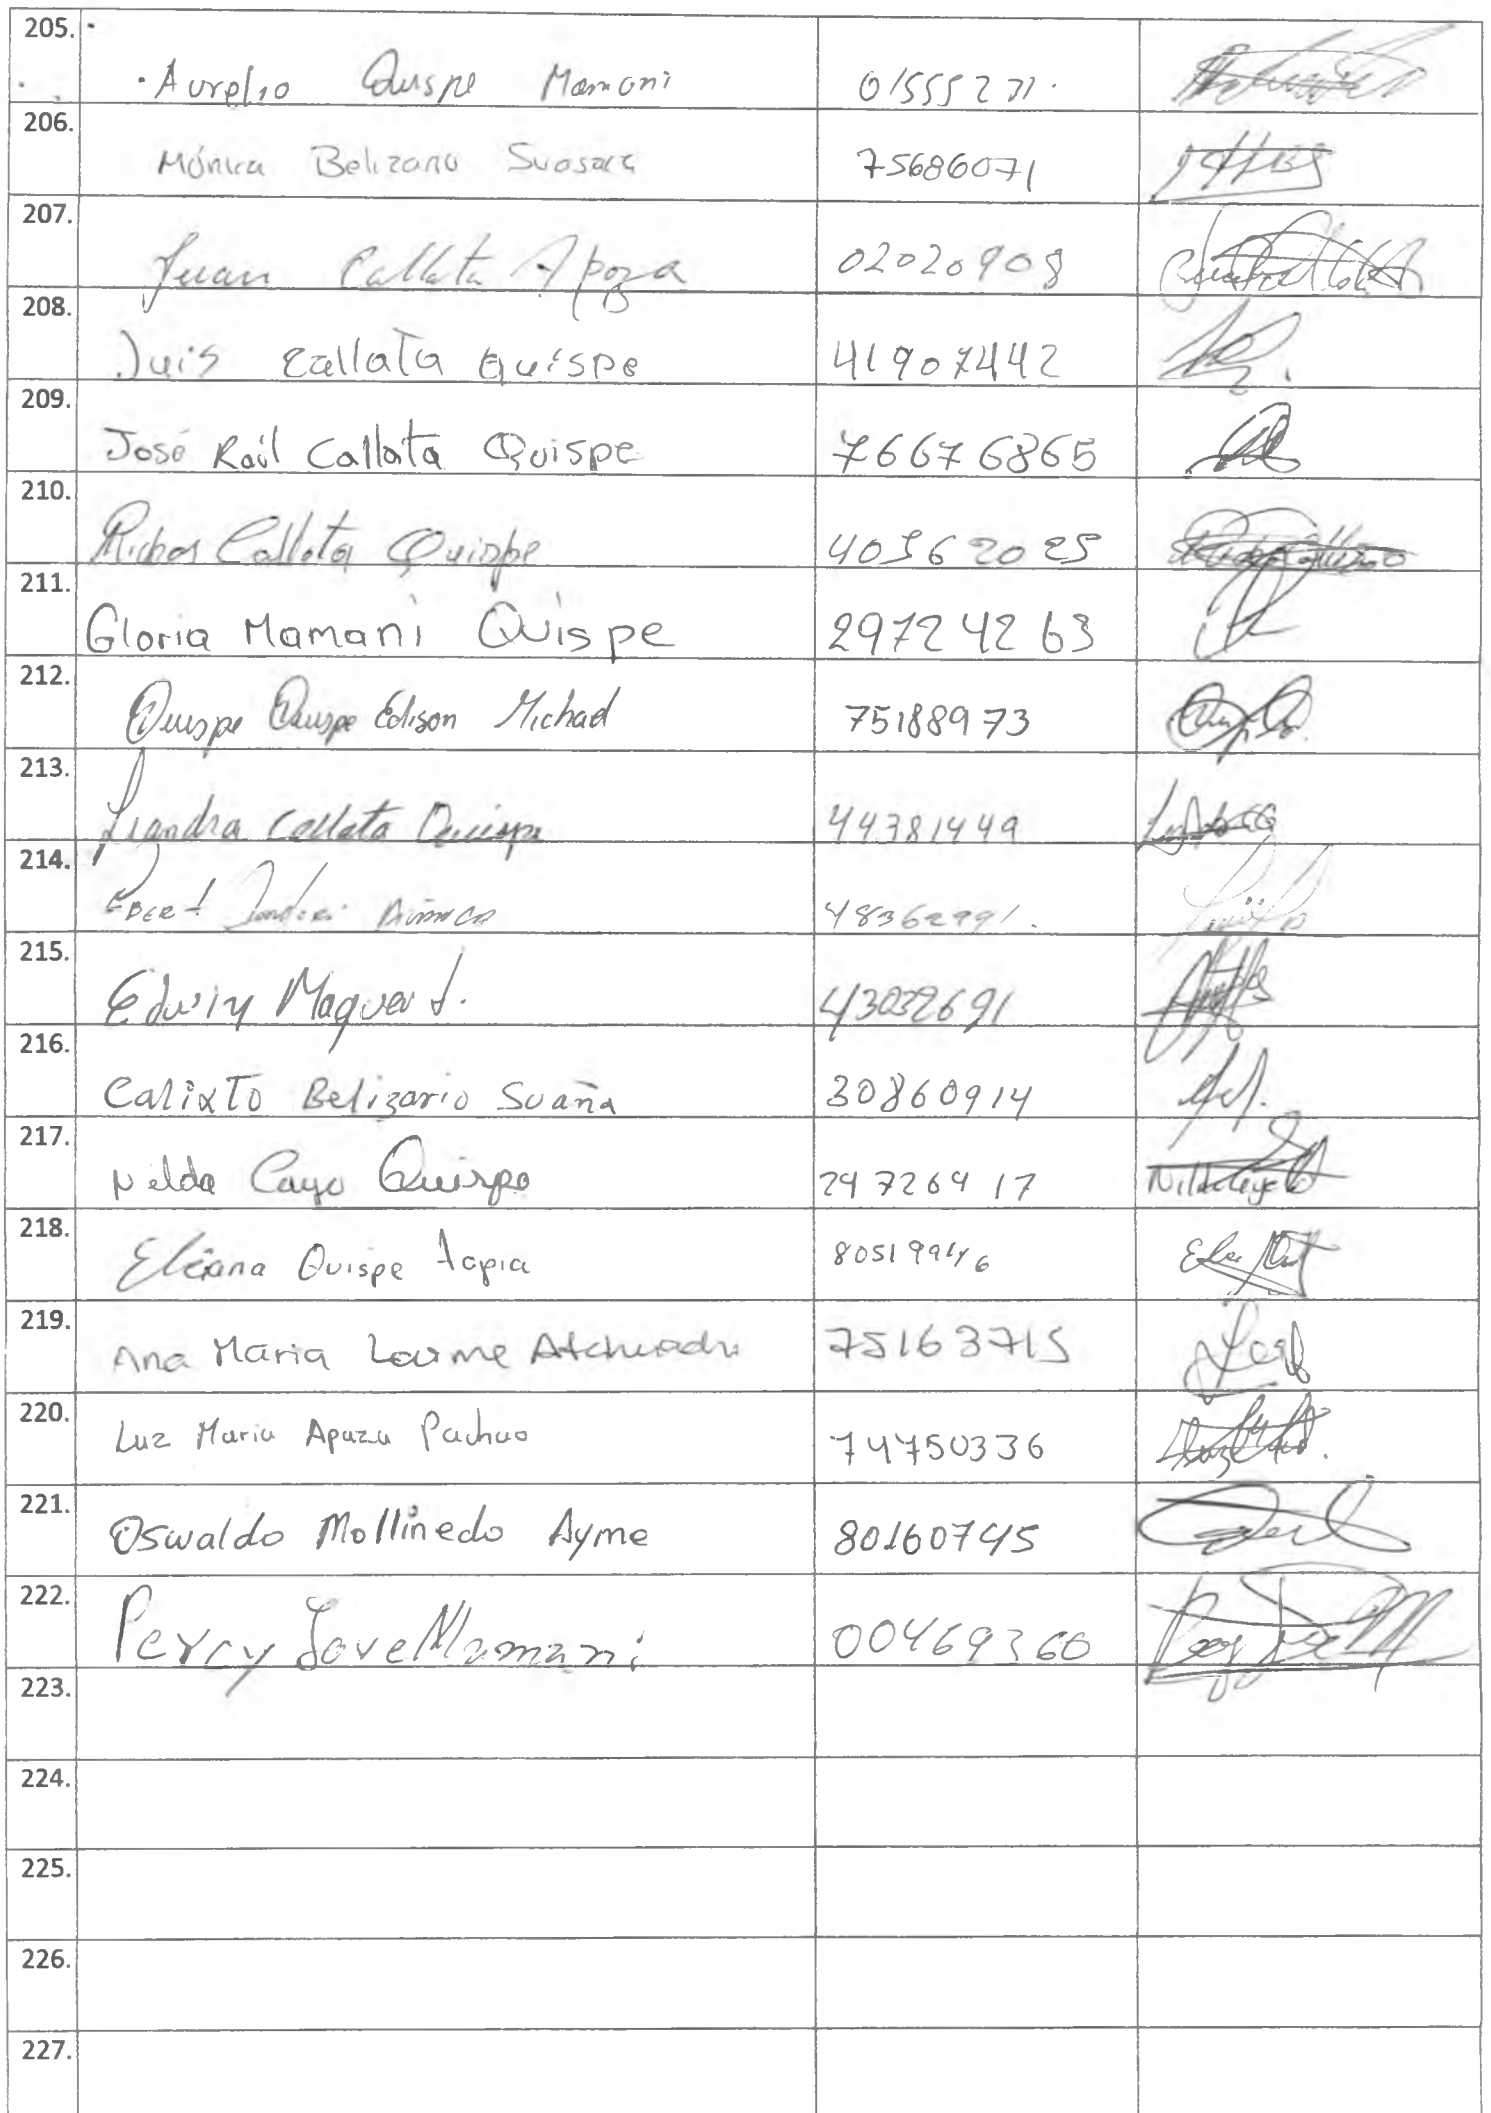 205.
Aurelio Quispe Mamani 01555231.
206.
Mónica Belizario Suasaca 75686071
207.
Juan Callata Apaza 02020908
208.
Luis Callata Quispe 41907442
209.
José Raúl Callata Quispe 76676865
210.
Richar Callata Quispe 40562025
211.
Gloria Mamani Quispe 29724263
212.
Quispe Quispe Edison Michael 75188973
213.
Liandra Callata Quispe 44381449
214.
Ebert
215.
Edwin Maquera 43032691
216.
Calixto Belizario Suaña 30860914
217.
Nelda Cayo Quispe
218.
Eliana Quispe Tapia
219.
Ana Maria Layme 75163715
220.
Luz Maria Apaza 74750336
221.
Oswaldo Mollinedo Ayme 80160745
222.
Percy Jove Mamani 00469360
223.
224.
225.
226.
227.